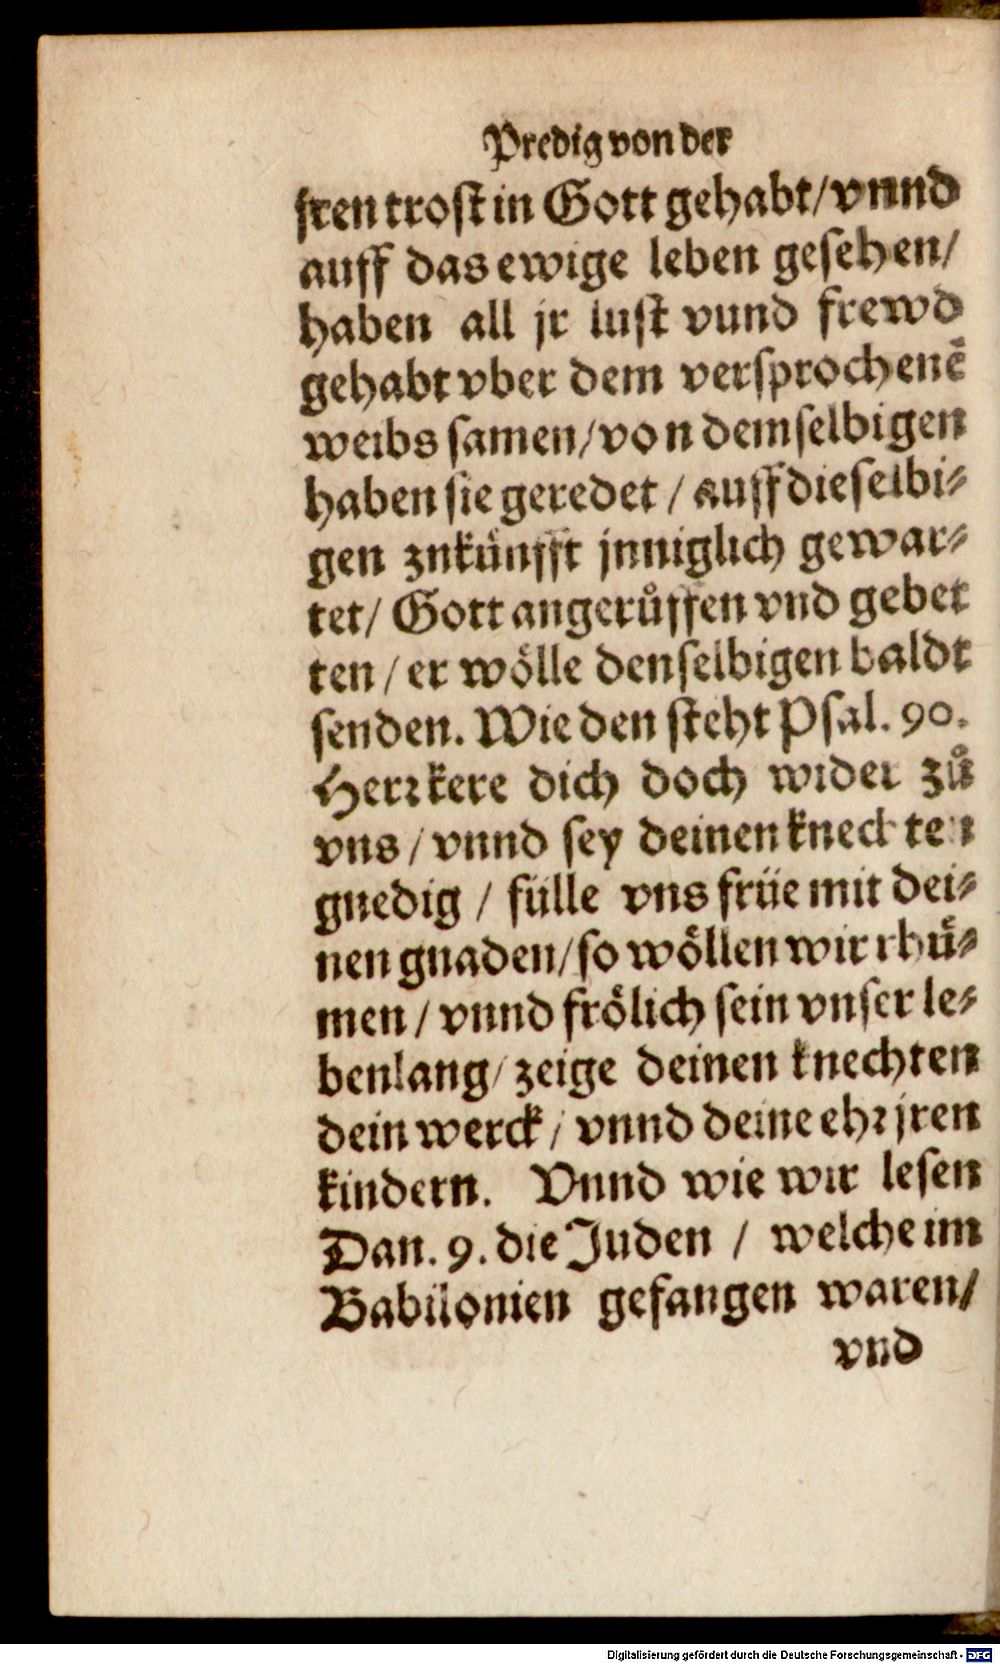 Predig von der
jren trost in Gott gehabt/ vnnd
auff das ewige leben gesehen/
haben all jr lust vund frewd
gehabt vber dem versprochenẽ
weibs samen/ von demselbigen
haben sie geredet / auff dieselbi⸗
gen znkünfft jnniglich gewar⸗
tet/ Gott angerůffen vnd gebet
ten / er wölle denselbigen baldt
senden. Wie den steht Psal. 90.
Herr kere dich doch wider zů
vns / vnnd sey deinen knechten
gnedig / fülle vns früe mit dei⸗
nen gnaden/ so wöllen wir rhů⸗
men / vnnd frölich sein vnser le⸗
benlang/ zeige deinen knechten
dein werck / vnnd deine ehr jren
kindern. Vnnd wie wir lesen
Dan. 9. die Juden / welche im
Babilonien gefangen waren/
vnd
Digitalisierung gefördert durch die Deutsche Forschungsgemeinschaft - DFG